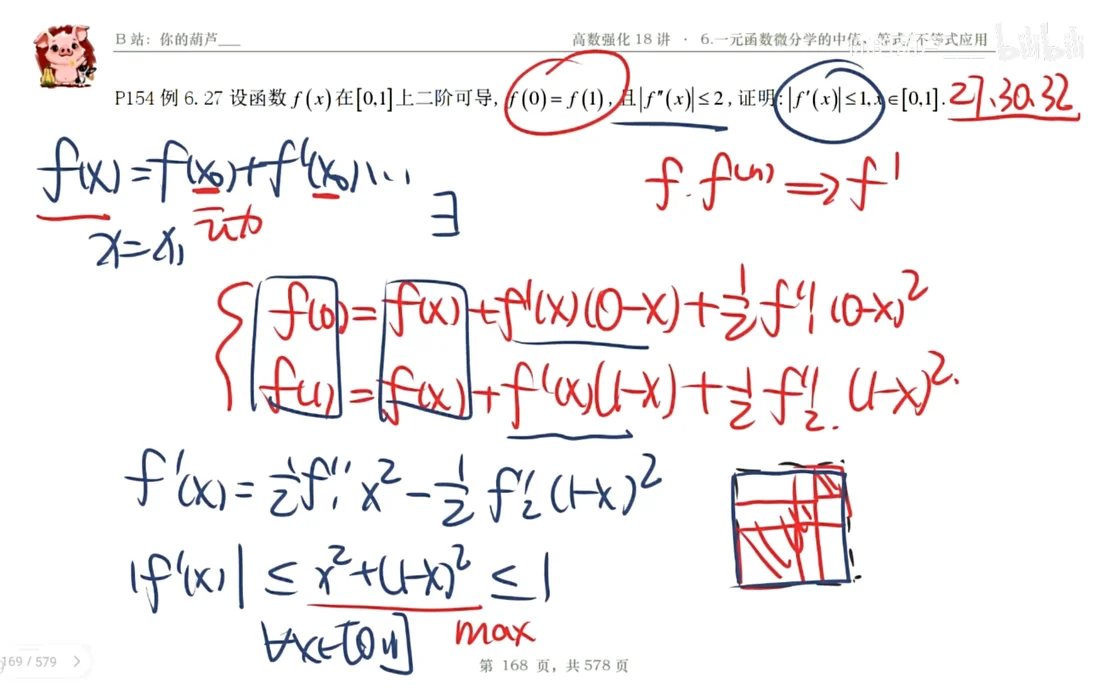 B 站：你的葫芦___
高数强化 18 讲 · 6.一元函数微分学的中值、等式/不等式应用
bilibili
P154 例 6.27 设函数 f(x) 在 [0,1] 上二阶可导, f(0) = f(1), 且 |f″(x)| ≤ 2, 证明: |f′(x)| ≤ 1, x ∈ [0,1].
27.30.32
f(x) = f(x₀) + f′(x₀)…
f. f⁽ⁿ⁾ ⟹ f′
x = x₁
∃
f(0) = f(x) + f′(x)(0-x) + ½ f″₁ (0-x)²
f(1) = f(x) + f′(x)(1-x) + ½ f″₂ (1-x)².
f′(x) = ½ f″₁ x² - ½ f″₂ (1-x)²
|f′(x)| ≤ x² + (1-x)² ≤ 1
∀x∈[0,1]
max
169 / 579
第 168 页，共 578 页